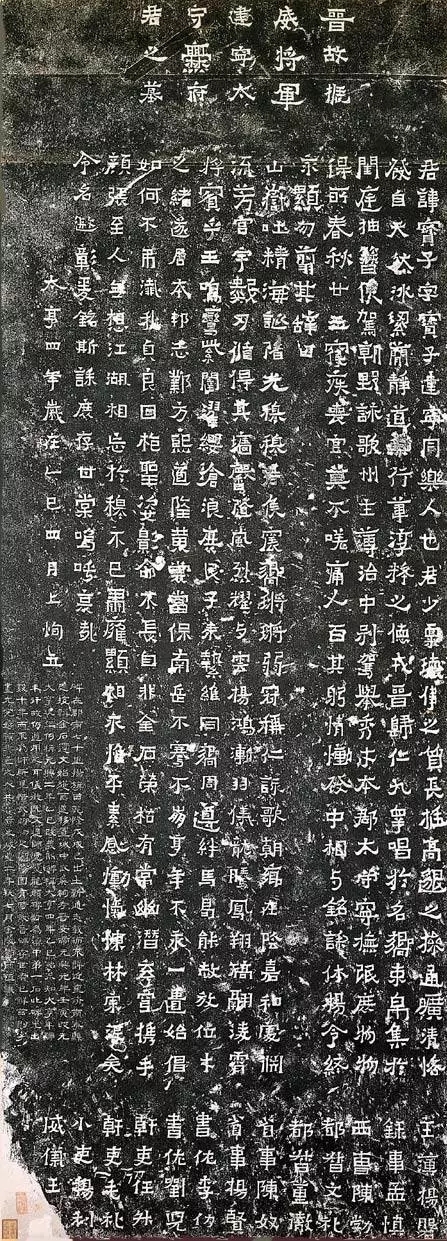 晉故振
威將軍
建寧太
守爨府
君之墓
君諱寶子字寶子建寧同樂人也君少稟瓌偉之質長挺高邈之操通曠清恪
發自天然冰絜簡靜道兼行葦淳粹之德戎晉歸仁九皋唱於名嚮束帛集於
閨庭抽簪俟駕朝野詠歌州主簿治中別駕舉秀才本郡太守寧撫氓庶物物
得所春秋廿五寢疾喪官莫不嗟痛人百其躬情慟發中相与銘誄休揚令終
永顯勿翦其辭曰
山嶽吐精海誕降光穆穆君侯震嚮鏘鏘弱冠稱仁詠歌朝鄉在陰嘉和處淵
流芳宮宇數刃循得其墻馨隨風烈耀与雲揚鴻漸羽儀龍騰鳳翔矯翮凌霄
將賓乎王鳴鸞紫闥濯纓滄浪庶民子來縶維同嚮周遵絆馬曷能赦放位才
之緒遂居本邦志鄴方熙道隆黃裳當保南岳不騫不崩享年不永一匱始倡
如何不弔殲我貞良回抱聖姿影命不長自非金石榮枯有常幽潛玄穹攜手
顏張至人無想江湖相忘於穆不已肅雍顯相永惟平素感慟忼慨林宗沒矣
令名遐彰爰銘斯誄庶存甘棠嗚呼哀哉
太亨四年歲在乙巳四月上恂立
主簿楊磐
錄事孟慎
西曹陳勃
都督文礼
都督董徹
省事陳奴
省事楊賢
書佐李仂
書佐劉兒
幹吏任升
幹吏毛礼
小吏楊利
威儀王